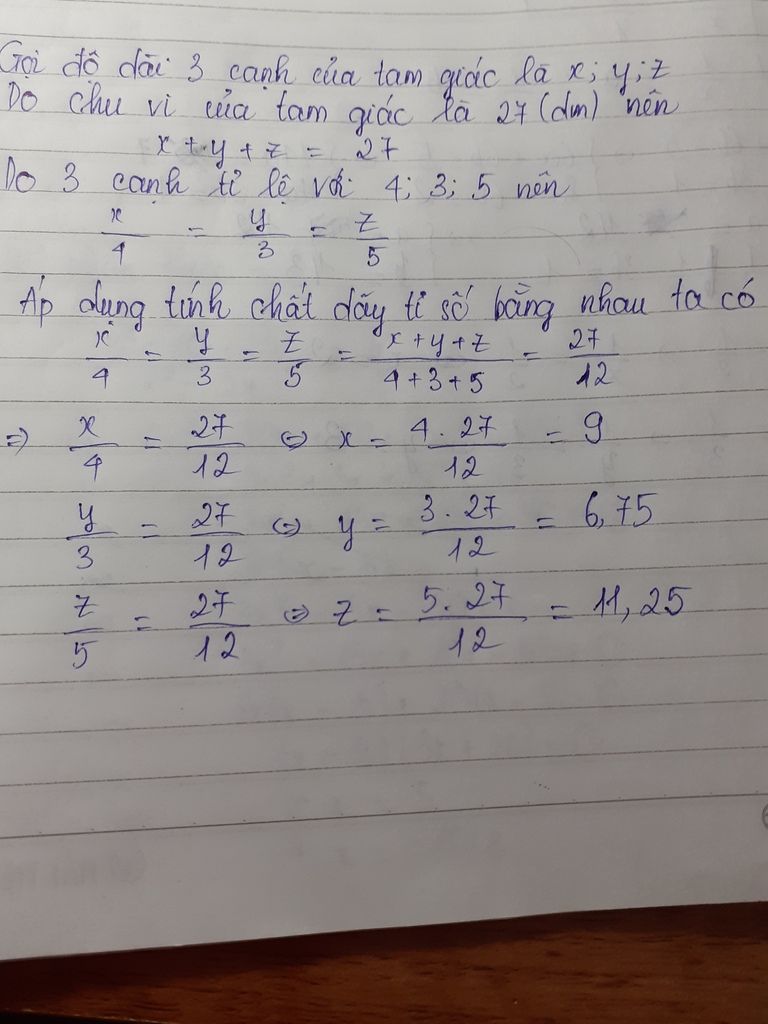 Gọi độ dài 3 cạnh của tam giác là x; y; z
Do chu vi của tam giác là 27 (dm) nên
x + y + z = 27
Do 3 cạnh tỉ lệ với 4; 3; 5 nên
x/4 = y/3 = z/5
Áp dụng tính chất dãy tỉ số bằng nhau ta có
x/4 = y/3 = z/5 = (x + y + z)/(4 + 3 + 5) = 27/12
⇒ x/4 = 27/12 ⇔ x = (4 . 27)/12 = 9
y/3 = 27/12 ⇔ y = (3 . 27)/12 = 6,75
z/5 = 27/12 ⇔ z = (5 . 27)/12 = 11,25